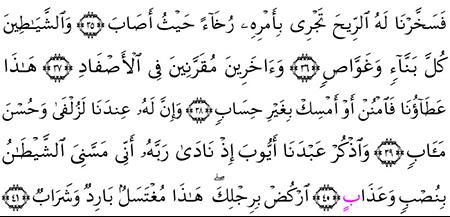 فَسَخَّرْنَا لَهُ ٱلرِّيحَ تَجْرِى بِأَمْرِهِۦ رُخَآءً حَيْثُ أَصَابَ ﴿٣٥﴾ وَٱلشَّيَٰطِينَ
كُلَّ بَنَّآءٍ وَغَوَّاصٍ ﴿٣٦﴾ وَءَاخَرِينَ مُقَرَّنِينَ فِى ٱلْأَصْفَادِ ﴿٣٧﴾ هَٰذَا
عَطَآؤُنَا فَٱمْنُنْ أَوْ أَمْسِكْ بِغَيْرِ حِسَابٍ ﴿٣٨﴾ وَإِنَّ لَهُۥ عِندَنَا لَزُلْفَىٰ وَحُسْنَ
مَـَٔابٍ ﴿٣٩﴾ وَٱذْكُرْ عَبْدَنَآ أَيُّوبَ إِذْ نَادَىٰ رَبَّهُۥٓ أَنِّى مَسَّنِىَ ٱلشَّيْطَٰنُ
بِنُصْبٍ وَعَذَابٍ ﴿٤٠﴾ ٱرْكُضْ بِرِجْلِكَ ۖ هَٰذَا مُغْتَسَلٌۢ بَارِدٌ وَشَرَابٌ ﴿٤١﴾